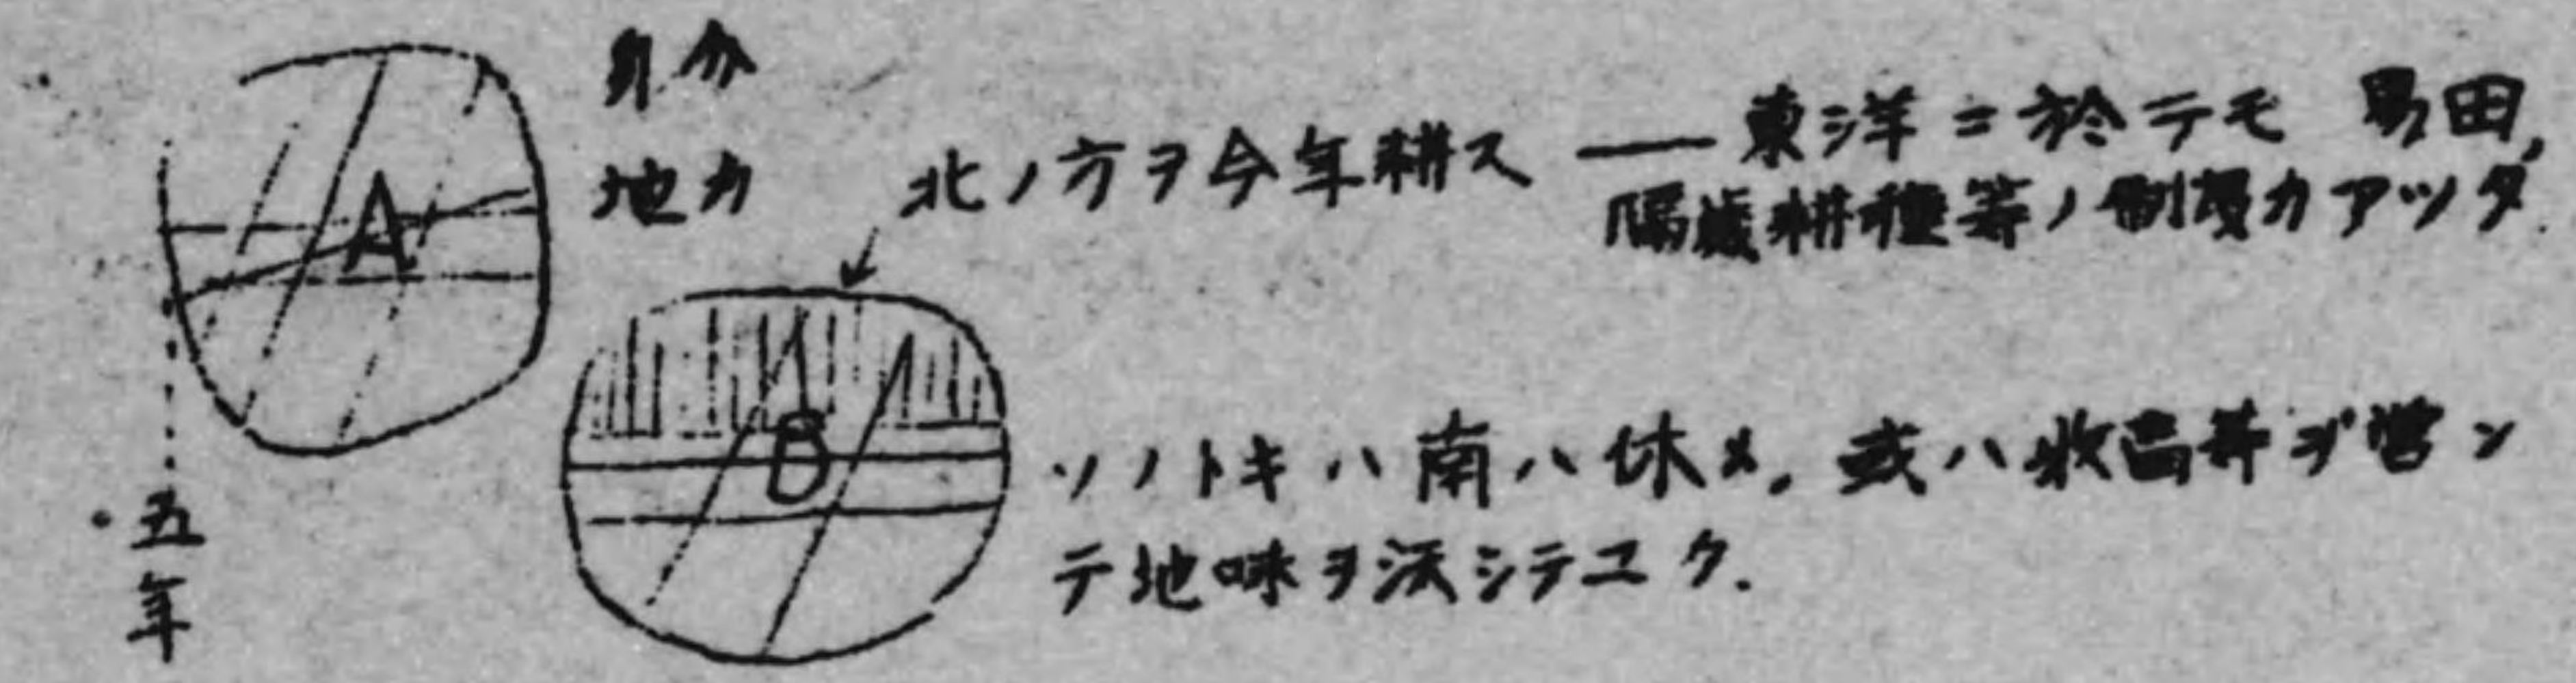 身分
地力
北ノ方ヲ今年耕ス —— 東洋ニ於テモ 易田,
隔歳耕種等ノ制度カアツタ.
A
B
ソノトキハ南ハ休メ, 或ハ牧畜等ヲ営ン
テ地味ヲ沃シテユク.
・五年